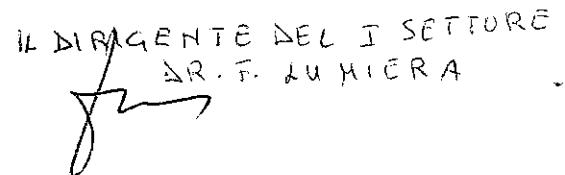 IL DIRIGENTE DEL I SETTORE
DR. F. LUMIERA